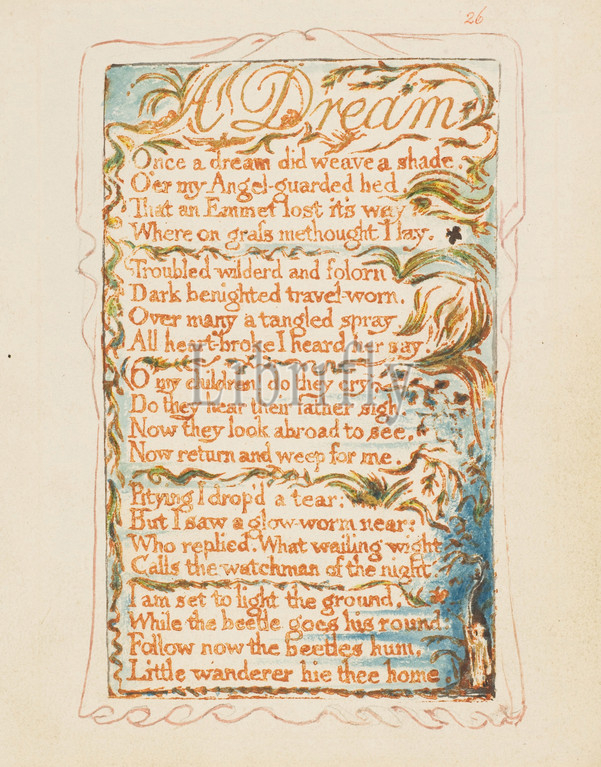 26
A Dream
Once a dream did weave a shade,
O'er my Angel-guarded bed,
That an Emmet lost it's way
Where on grass methought I lay.
Troubled wilderd and folorn
Dark benighted travel-worn,
Over many a tangled spray
All heart-broke I heard her say.
O my children! do they cry,
Do they hear their father sigh.
Now they look abroad to see,
Now return and weep for me.
Pitying I drop'd a tear:
But I saw a glow-worm near:
Who replied. What wailing wight
Calls the watchman of the night.
I am set to light the ground,
While the beetle goes his round:
Follow now the beetles hum,
Little wanderer hie thee home.
Librifly